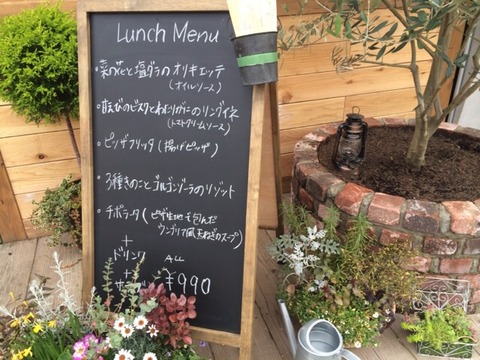 Lunch Menu
・菜の花と塩ダラのオリキエッテ
(オイルソース)
・甘えびのビスクとわたりがにのリングイネ
(トマトクリームソース)
・ピッザフリッタ (揚げピッザ)
・3種きのことゴルゴンゾーラのリゾット
・チポラータ (ピザ生地で包んだ
ウンブリア風玉ねぎのスープ)
+
ドリンク
+
ALL
¥990